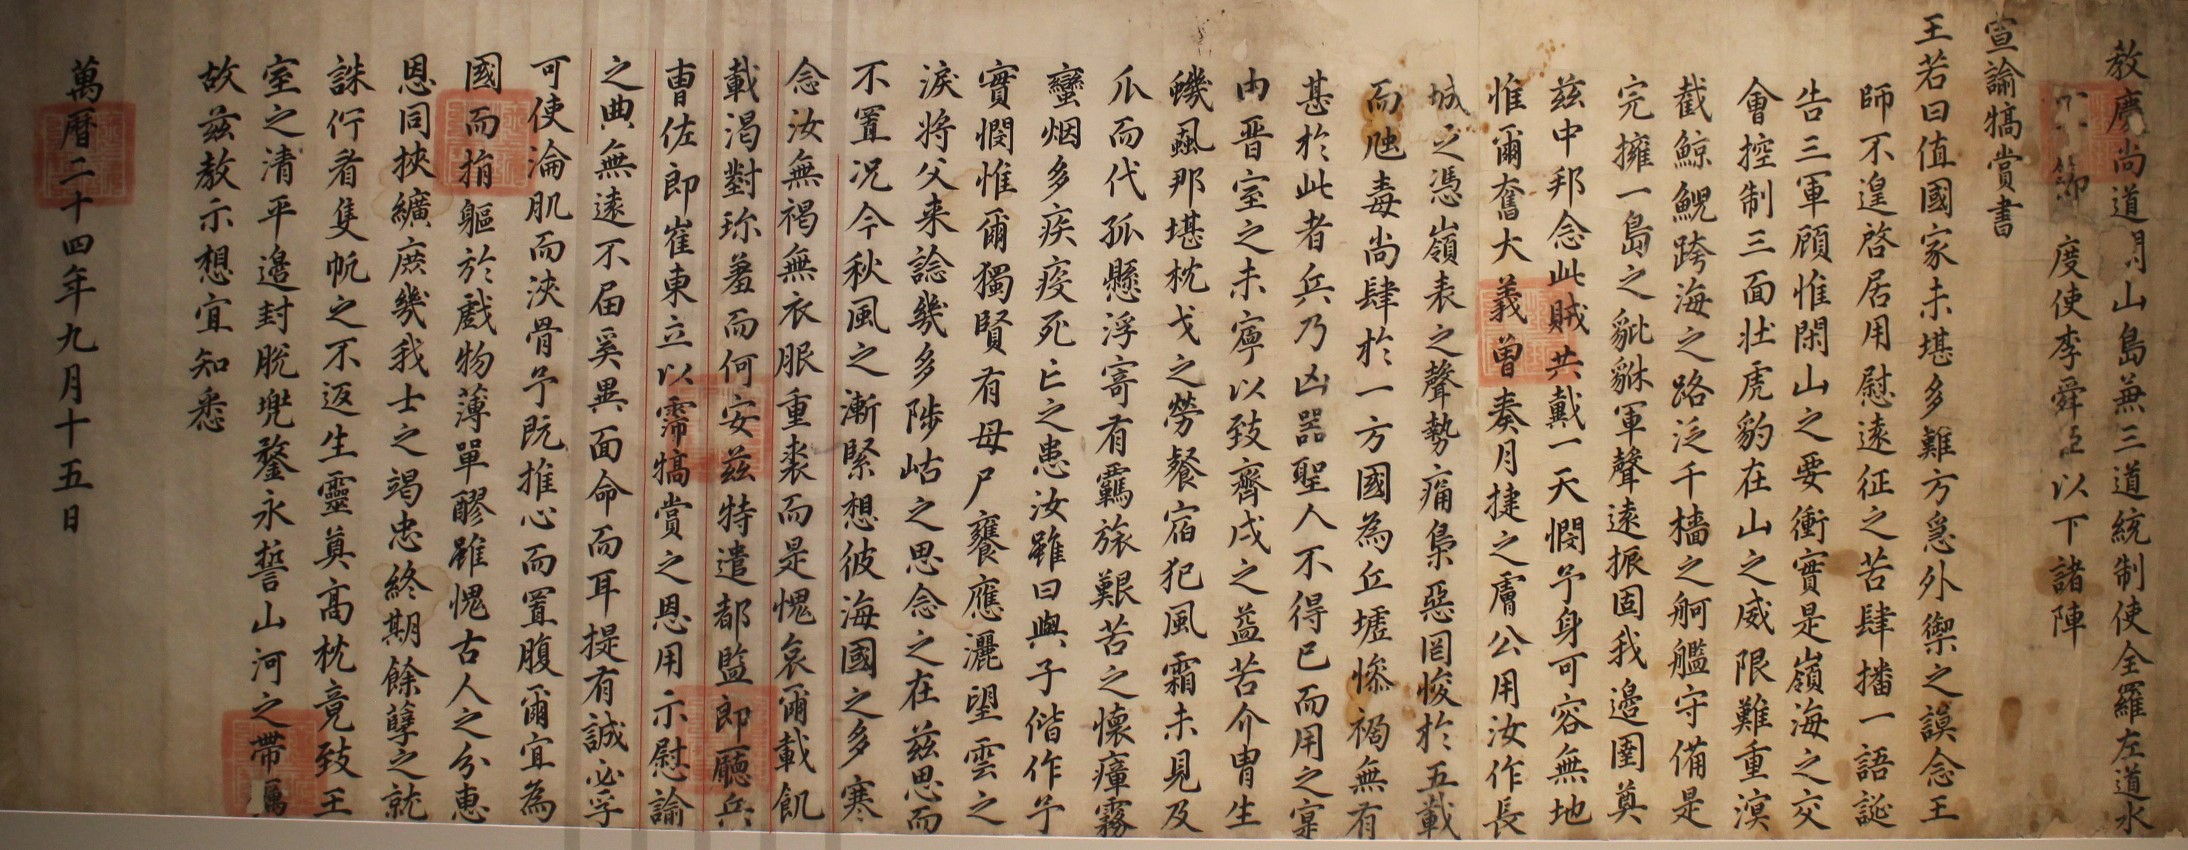 教慶尚道閑山島兼三道統制使全羅左道水
節度使李舜臣以下諸陣
宣諭犒賞書
王若曰值國家未堪多難方急外禦之謨念王
師不遑啓居用慰遠征之苦肆播一語誕
告三軍顧惟閑山之要衝實是嶺海之交
會控制三面壯虎豹在山之威限難重溟
截鯨鯢跨海之路泛千檣之舸艦守備是
完擁一島之貔貅軍聲遠振固我邊圉奠
茲中邦念此賊共戴一天憫予身可容無地
惟爾奮大義曾奏月捷之膚公用汝作長
城之憑嶺表之聲勢痛梟惡罔悛於五載
而虺毒尚肆於一方國為丘墟慘禍無有
甚於此者兵乃凶器聖人不得已而用之寔
由晋室之未寧以致齊戍之益苦介冑生
蟣蝨那堪枕戈之勞餐宿犯風霜未見及
瓜而代孤懸浮寄有羈旅艱苦之懷瘴霧
蠻烟多疾疫死亡之患汝雖曰與子偕作予
實憫惟爾獨賢有母尸饔應灑望雲之
淚將父来諗幾多陟岵之思念之在茲思而
不置况今秋風之漸緊想彼海國之多寒
念汝無褐無衣眼重裘而是愧哀爾載飢
載渴對珎羞而何安茲特遣都監郎廳兵
曹佐郎崔東立以霈犒賞之恩用示慰諭
之典無遠不届奚異面命而耳提有誠必孚
可使淪肌而浹骨予既推心而置腹爾宜為
國而捐軀於戲物薄單醪雖愧古人之分惠
恩同挾纊庶幾我士之竭忠終期餘孽之就
誅佇看隻帆之不返生靈奠高枕竟致王
室之清平邊封脫兜鍪永誓山河之帶礪
故茲敎示想宜知悉
萬曆二十四年九月十五日